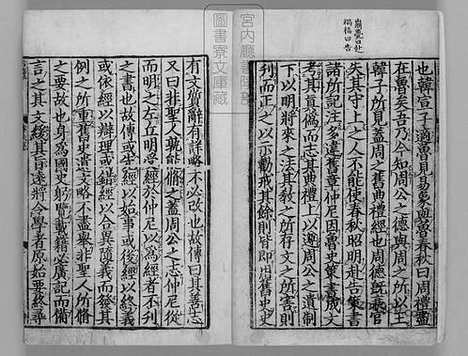 崩薨曰赴
禍福曰告
也韓宣子適魯見易象與魯春秋曰周禮盡
在魯矣吾乃今知周公之德與周之所以王
韓子所見蓋周之舊典禮經也周德既衰官
失其守上之人不能使春秋昭明赴告策書
諸所記注多違舊章仲尼因魯史策書成文
考其真偽而志其典禮上以遵周公之遺制
下以明將來之法其教之所存文之所害則
刊而正之以示勸戒其餘則皆即用舊史史
有文質辭有詳略不必改也故傳曰其善志
又曰非聖人孰能脩之蓋周公之志仲尼從
而明之左丘明受經於仲尼以為經者不刊
之書也故傳或先經以始事或後經以終義
或依經以辯理或錯經以合異隨義而發其
例之所重舊史遺文略不盡舉非聖人所脩
之要故也身為國史躬覽載籍必廣記而備
言之其文緩其旨遠將令學者原始要終尋
宮内廳書陵部
圖書寮文庫藏